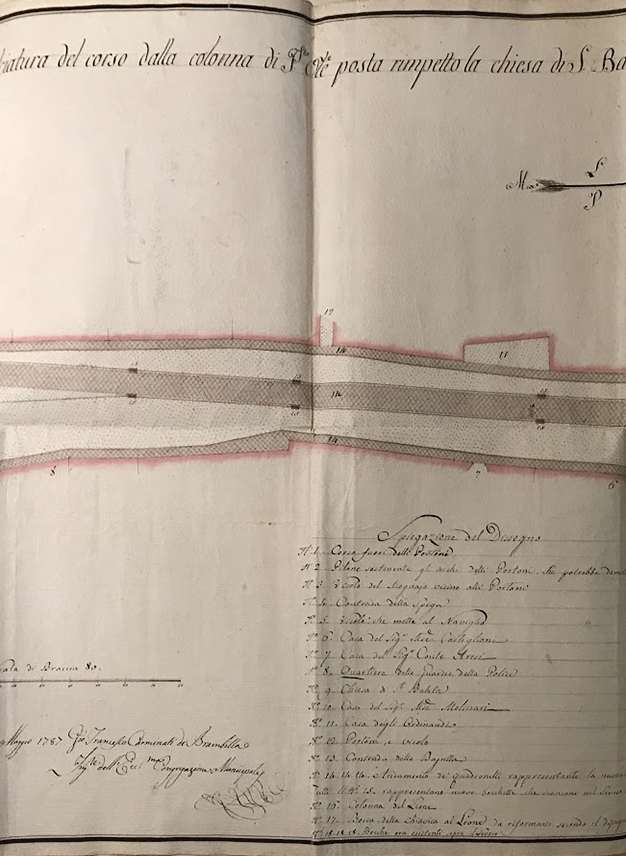 iatura del corso dalla colonna di P.ta Orle posta rimpetto la chiesa di S. Ba
L
M
P
12
14
11
13
13
14
13
13
13
14
8
7
6
Spiegazione del Disegno
N.° 1. Corso fuori delli Portoni
N.° 2 Pilone sostenente gli archi delli Portoni, che potrebbe demo
N.° 3 Vicolo del vicino alli Portoni
N.° 4. Contrada della Spiga
N.° 5. Vicolo che mette al Naviglio
N.° 6. Casa del Sig.r Castigliani
N.° 7. Casa del Sig.r Conte Aresi
N.° 8. Quartiere delle Guardie della Police
N.° 9. Chiesa di S. Babila
N.° 10. Casa del Sig.r Molinari
N.° 11. Casa degli Ordinandi
N.° 12. Portone e vicolo
N.° 13. Contrada della Bagutta
N.° 14. 14. 14. Andamento de' quadronelli rappresentante la nuova
Tutti li N.i 13. rappresentano nuove bocchette che scaricano nel
N.° 16. Colonna del Leone
N.° 17. Bocca della chiavica al Leone da riformarsi secondo il disegn
N.° 18. 18. 18. Bocche ora esistenti sopra il
cala di Braccia 80.
Maggio 1787 Gio. Francesco Carminati de Brambilla
Ing.e dell'Ecc.ma Congregazione Municipale